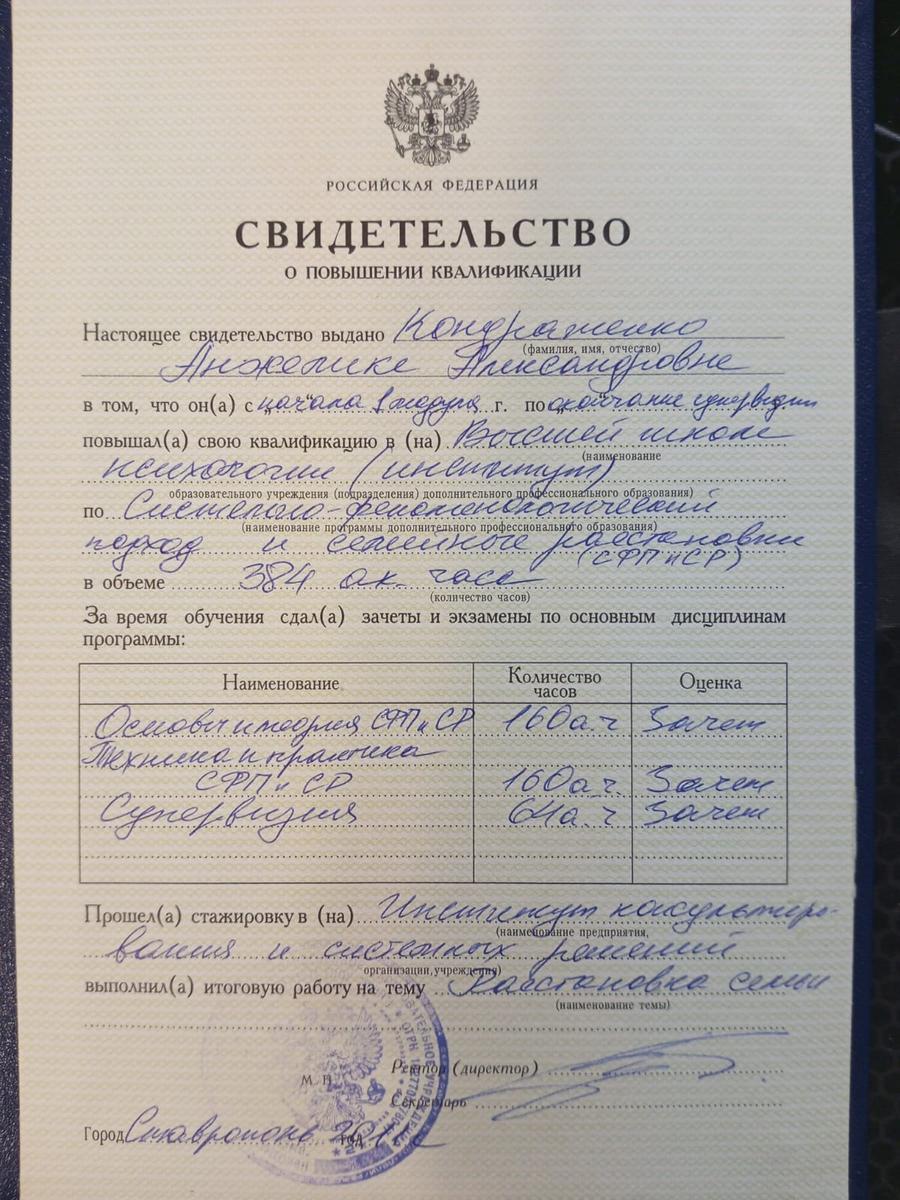 РОССИЙСКАЯ ФЕДЕРАЦИЯ
СВИДЕТЕЛЬСТВО
О ПОВЫШЕНИИ КВАЛИФИКАЦИИ
Настоящее свидетельство выдано Кондратенко
(фамилия, имя, отчество)
Анжелике Александровне
в том, что он(а) с начала 1 модуля г. по окончание супервизии
повышал(а) свою квалификацию в (на) Высшей школе
(наименование
психологии (институт)
образовательного учреждения (подразделения) дополнительного профессионального образования)
по Системно-феноменологический
(наименование программы дополнительного профессионального образования)
подход и семейные расстановки
(СФП и СР)
в объеме 384 ак. часа
(количество часов)
За время обучения сдал(а) зачеты и экзамены по основным дисциплинам
программы:
Наименование Количество часов Оценка
Основы и теория СФП и СР 160 а.ч Зачет
Техника и практика
СФП и СР 160 а.ч. Зачет
Супервизия 64 а.ч Зачет
Прошел(а) стажировку в (на) Институт консультиро-
(наименование предприятия,
вания и системных решений
организации, учреждения)
выполнил(а) итоговую работу на тему Расстановка семьи
(наименование темы)
Ректор (директор)
М. П.
Секретарь
Город Ставрополь год